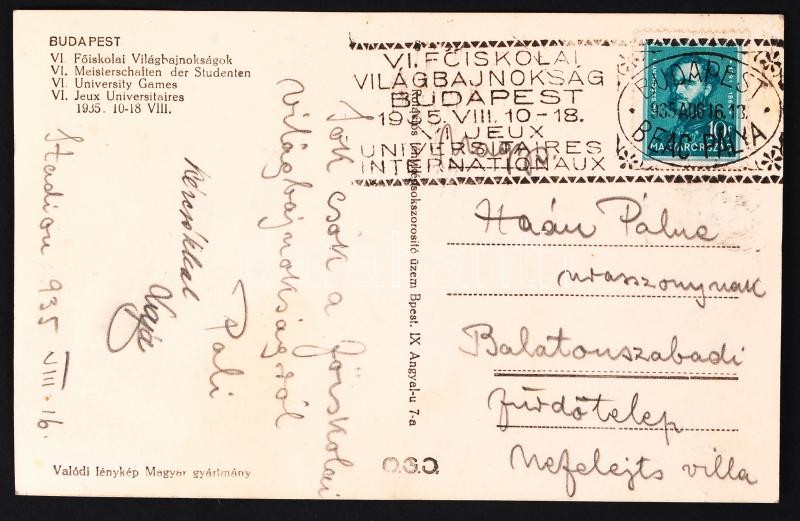 BUDAPEST
VI. Főiskolai Világbajnokságok
VI. Meisterschaften der Studenten
VI. University Games
VI. Jeux Universitaires
1935. 10-18 VIII.
VI. FŐISKOLAI
VILÁGBAJNOKSÁG
BUDAPEST
1935. VIII. 10-18.
VI. JEUX
UNIVERSITAIRES
INTERNATIONAUX
BUDAPEST
935 AUG 16. 18
10
MAGYARORSZÁG
Sok csók a főiskolai
világbajnokságról
Pali
Kézcsókkal
Stadion 935 VIII. 16.
Haán Pálné
urasszonynak
Balatonszabadi
fürdőtelep
Nefelejts villa
sokszorosító üzem Bpest. IX Angyal-u 7-a
O.S.O.
Valódi fénykép Magyar gyártmány
darabanth